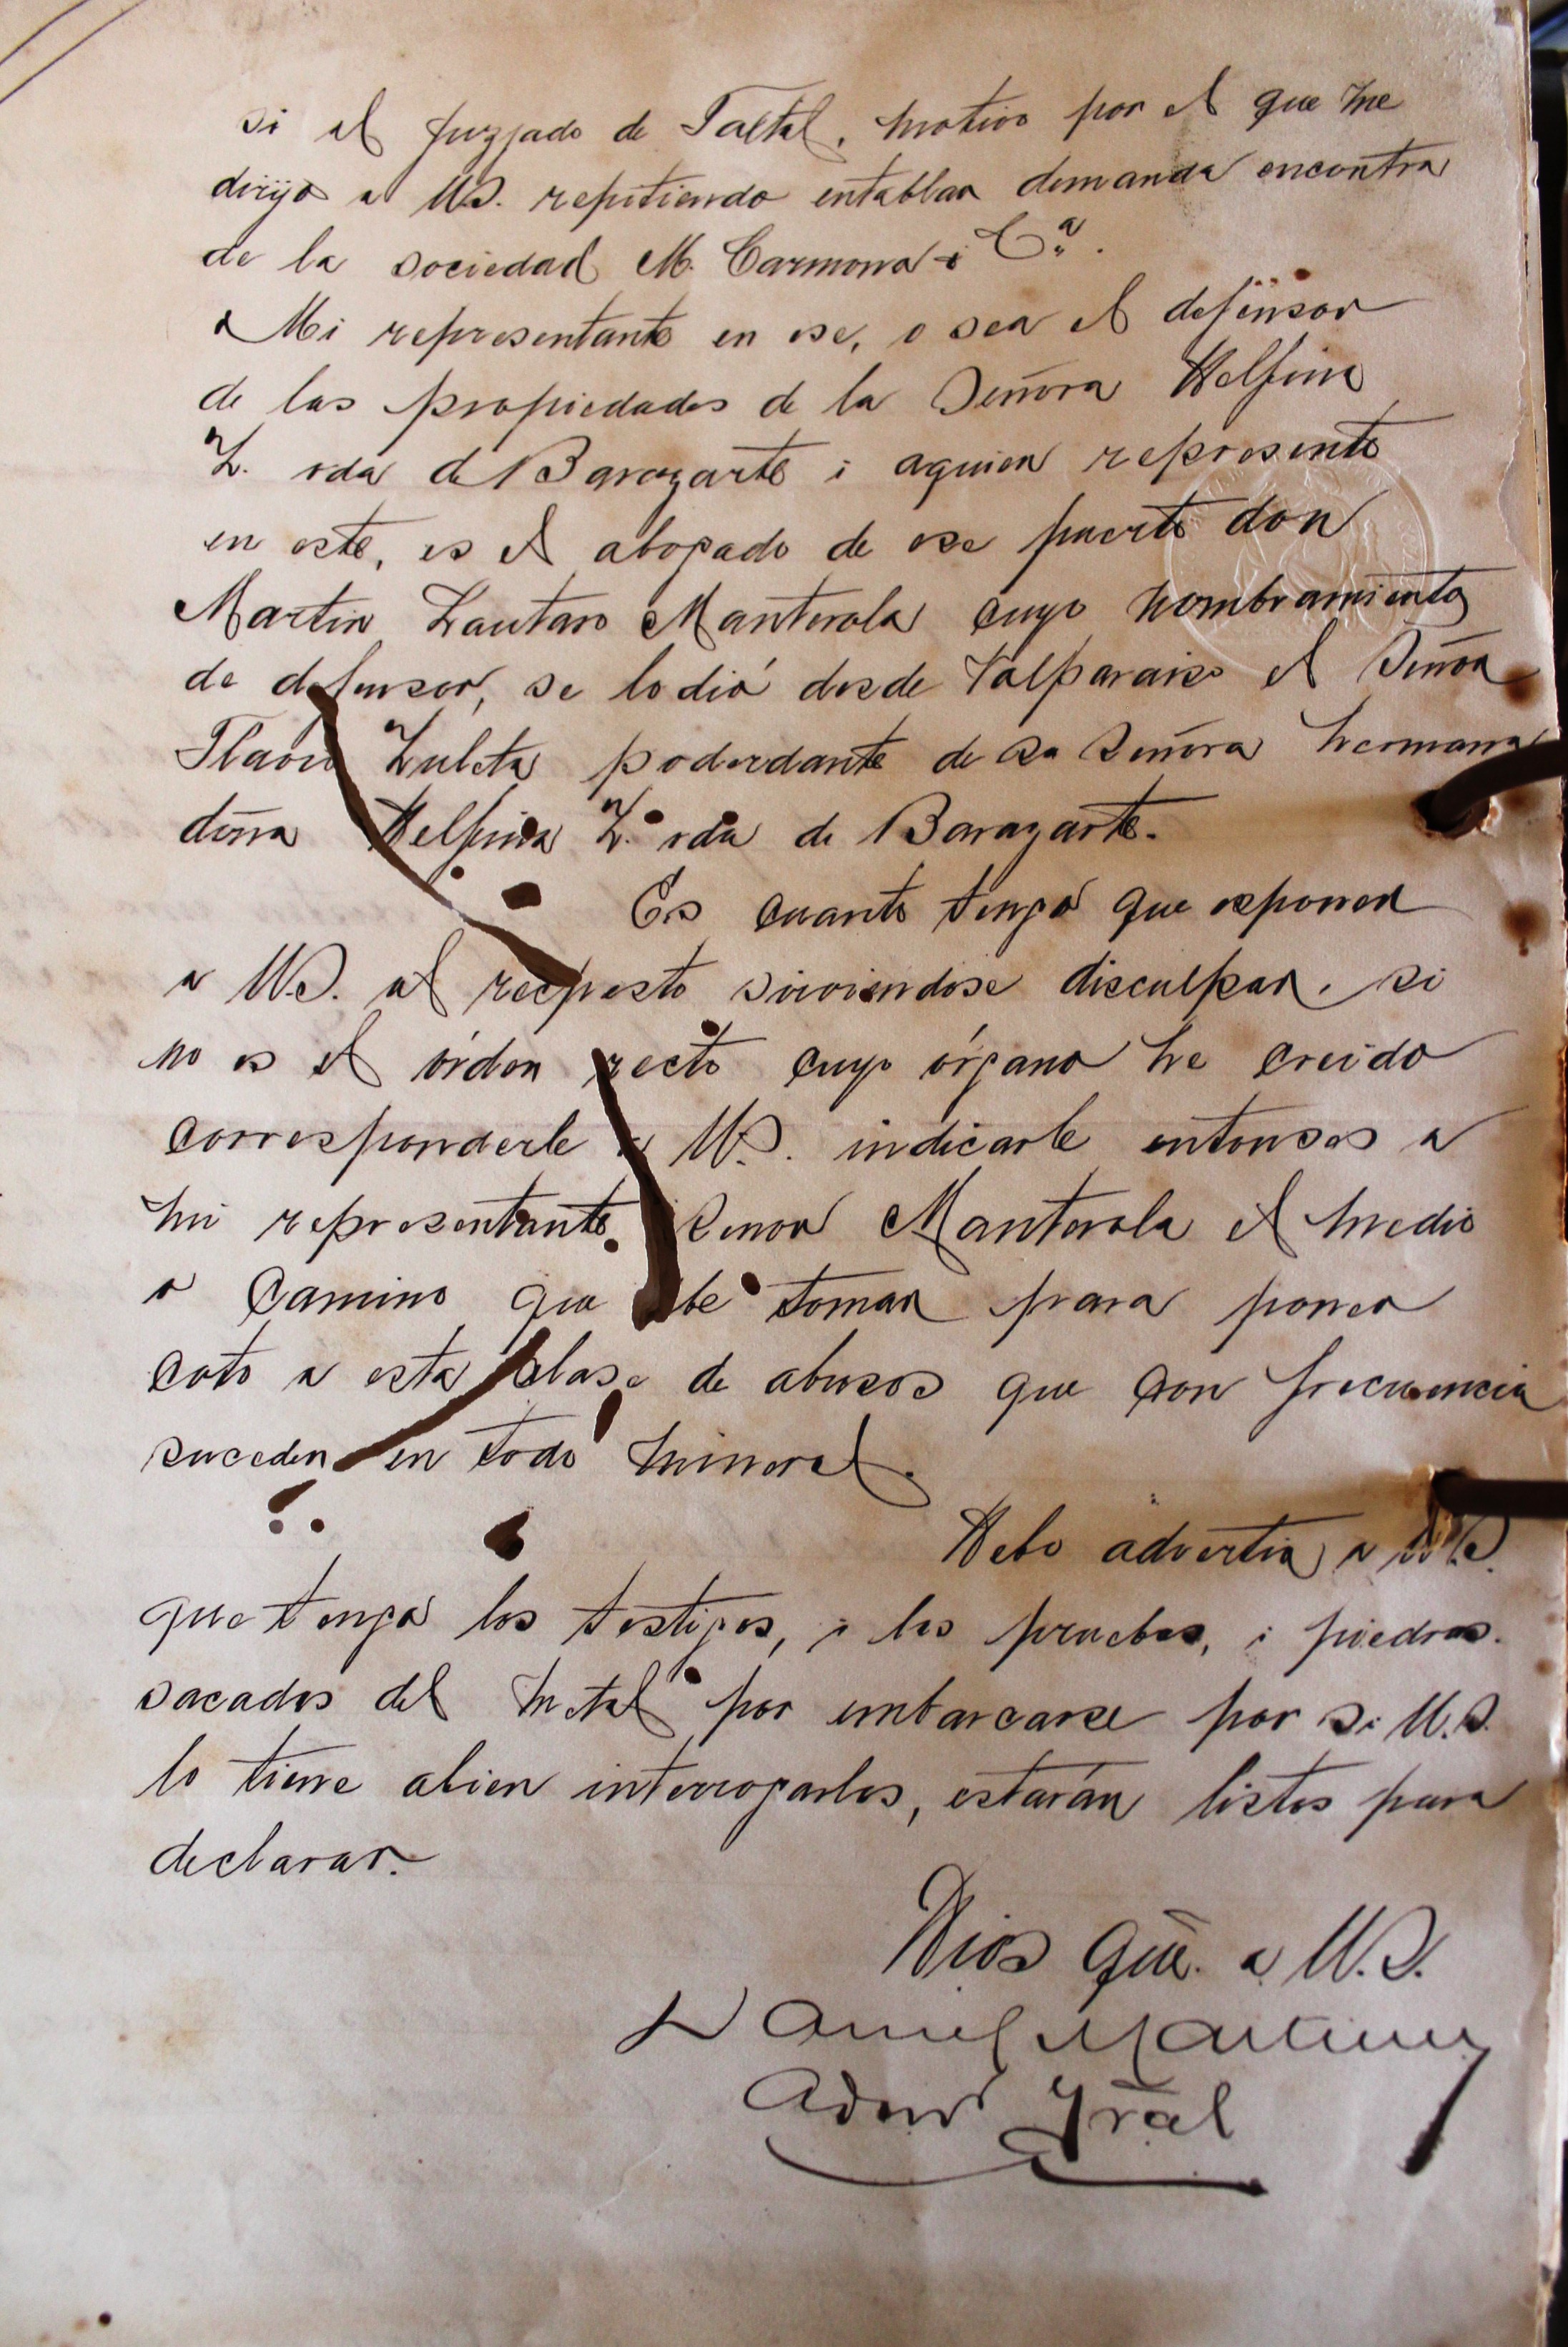 si el juzgado de Taltal, motivo por el que me
dirijo a US. repitiendo entablar demanda encontra
de la sociedad M. Carmona i Cª.
Mi representante en ese, o sea el defensor
de las propiedades de la Señora Delfina
Z. vda de Barazarte i aquien represento
en este, es el abogado de ese puerto don
Martin Lautaro Manterola cuyo nombramiento
de defensor, se lo dió desde Valparaiso el Señor
Flavio Zuleta poderdante de su Señora hermana
doña Delfina Z. vda de Barazarte.
Es cuanto tengo que esponer
a US. al respecto sirviendose disculpar, si
no es el órden recto cuyo órgano he creido
corresponderle a US. indicarle entonses a
mi representante Senor Manterola el medio
o camino que debe tomar para poner
coto a esta clase de abusos que con frecuencia
suceden en todo mineral.
Debo advertir a US.
que tengo los testigos, i las pruebas, i piedras
sacados del metal por embarcarse por si U.S.
lo tiene abien interrogarlos, estarán listos para
declarar.
Dios gue. a U.S.
Daniel Martinez
Admr Gral